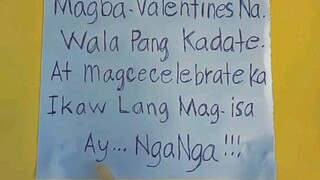 Magba-Valentines Na.
Wala Pang Kadate.
At magcecelebrate ka
Ikaw Lang Mag-isa
Ay... NgaNga!!!